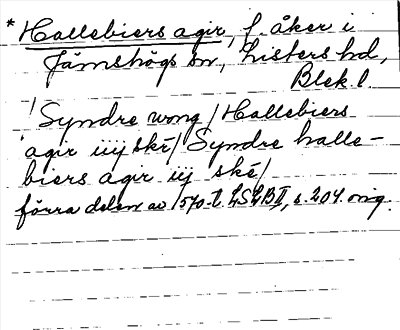 * Hallebiers agir, f. åker i
Jämshögs sn, Listers hd,
Blek. l.
/Syndre wong/Hallebiers
agir iiij ske/ Syndre halle-
biers agir iij ske/
förra delen av 1570-t. LSLB II, s. 204. orig.